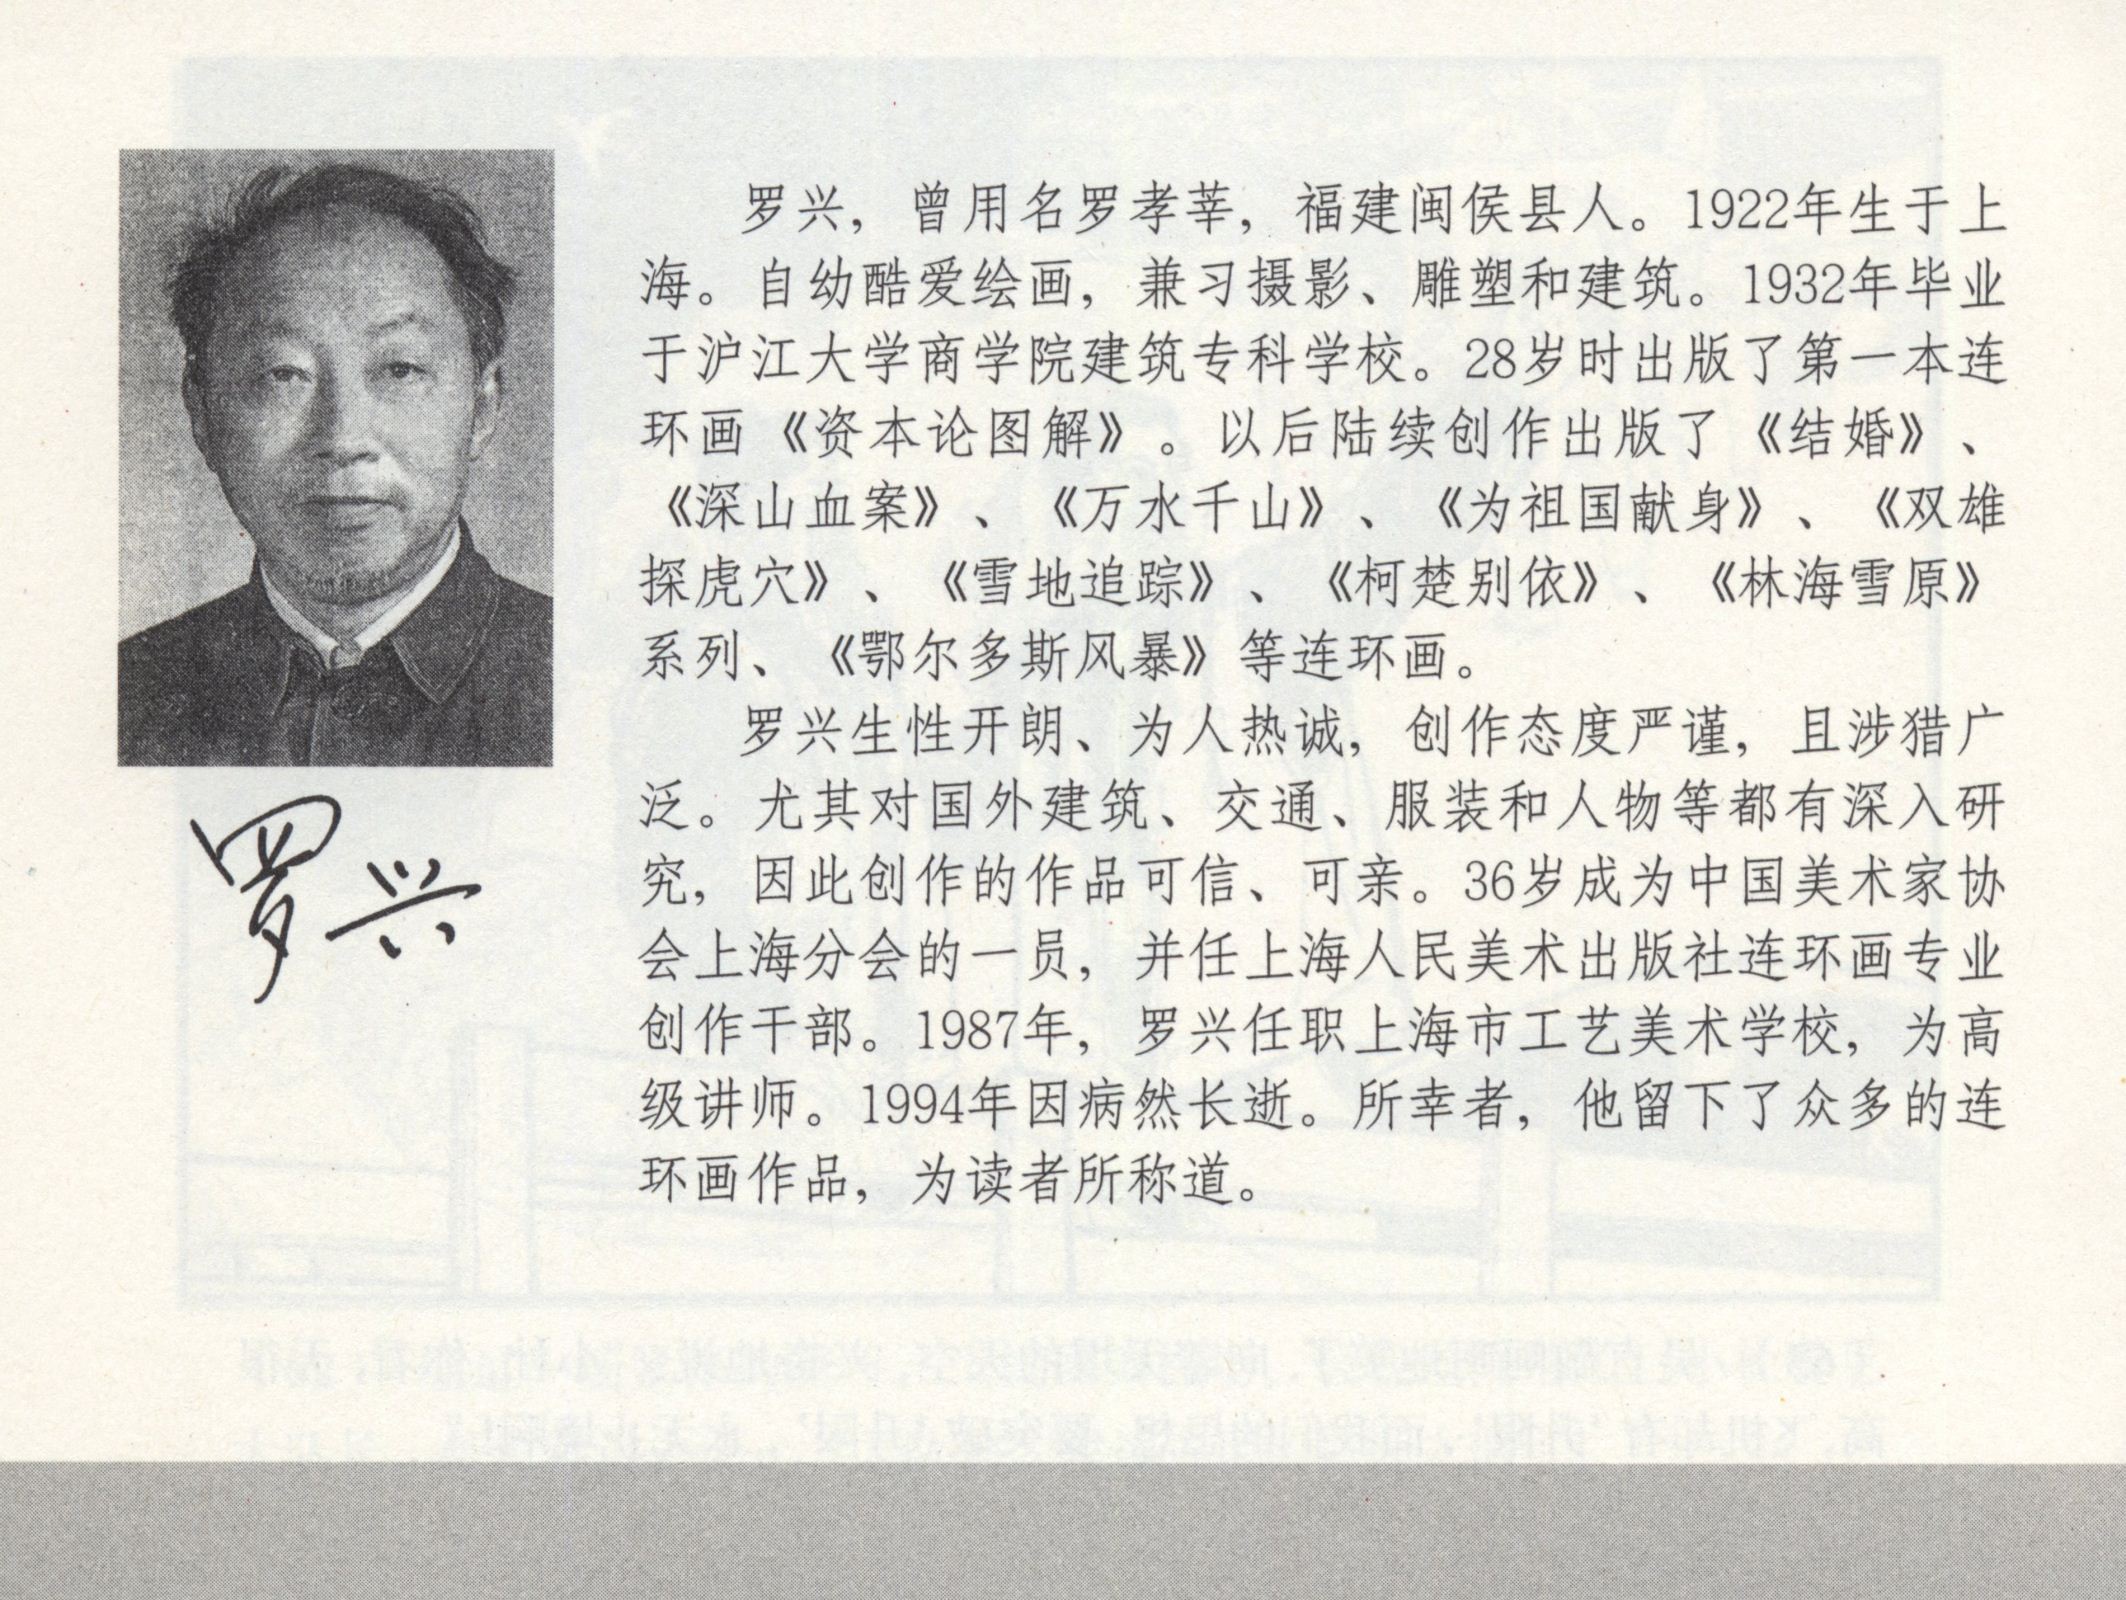 罗兴，曾用名罗孝莘，福建闽侯县人。1922年生于上
海。自幼酷爱绘画，兼习摄影、雕塑和建筑。1932年毕业
于沪江大学商学院建筑专科学校。28岁时出版了第一本连
环画《资本论图解》。以后陆续创作出版了《结婚》、
《深山血案》、《万水千山》、《为祖国献身》、《双雄
探虎穴》、《雪地追踪》、《柯楚别依》、《林海雪原》
系列、《鄂尔多斯风暴》等连环画。
罗兴生性开朗、为人热诚，创作态度严谨，且涉猎广
泛。尤其对国外建筑、交通、服装和人物等都有深入研
究，因此创作的作品可信、可亲。36岁成为中国美术家协
会上海分会的一员，并任上海人民美术出版社连环画专业
创作干部。1987年，罗兴任职上海市工艺美术学校，为高
级讲师。1994年因病然长逝。所幸者，他留下了众多的连
环画作品，为读者所称道。
罗兴